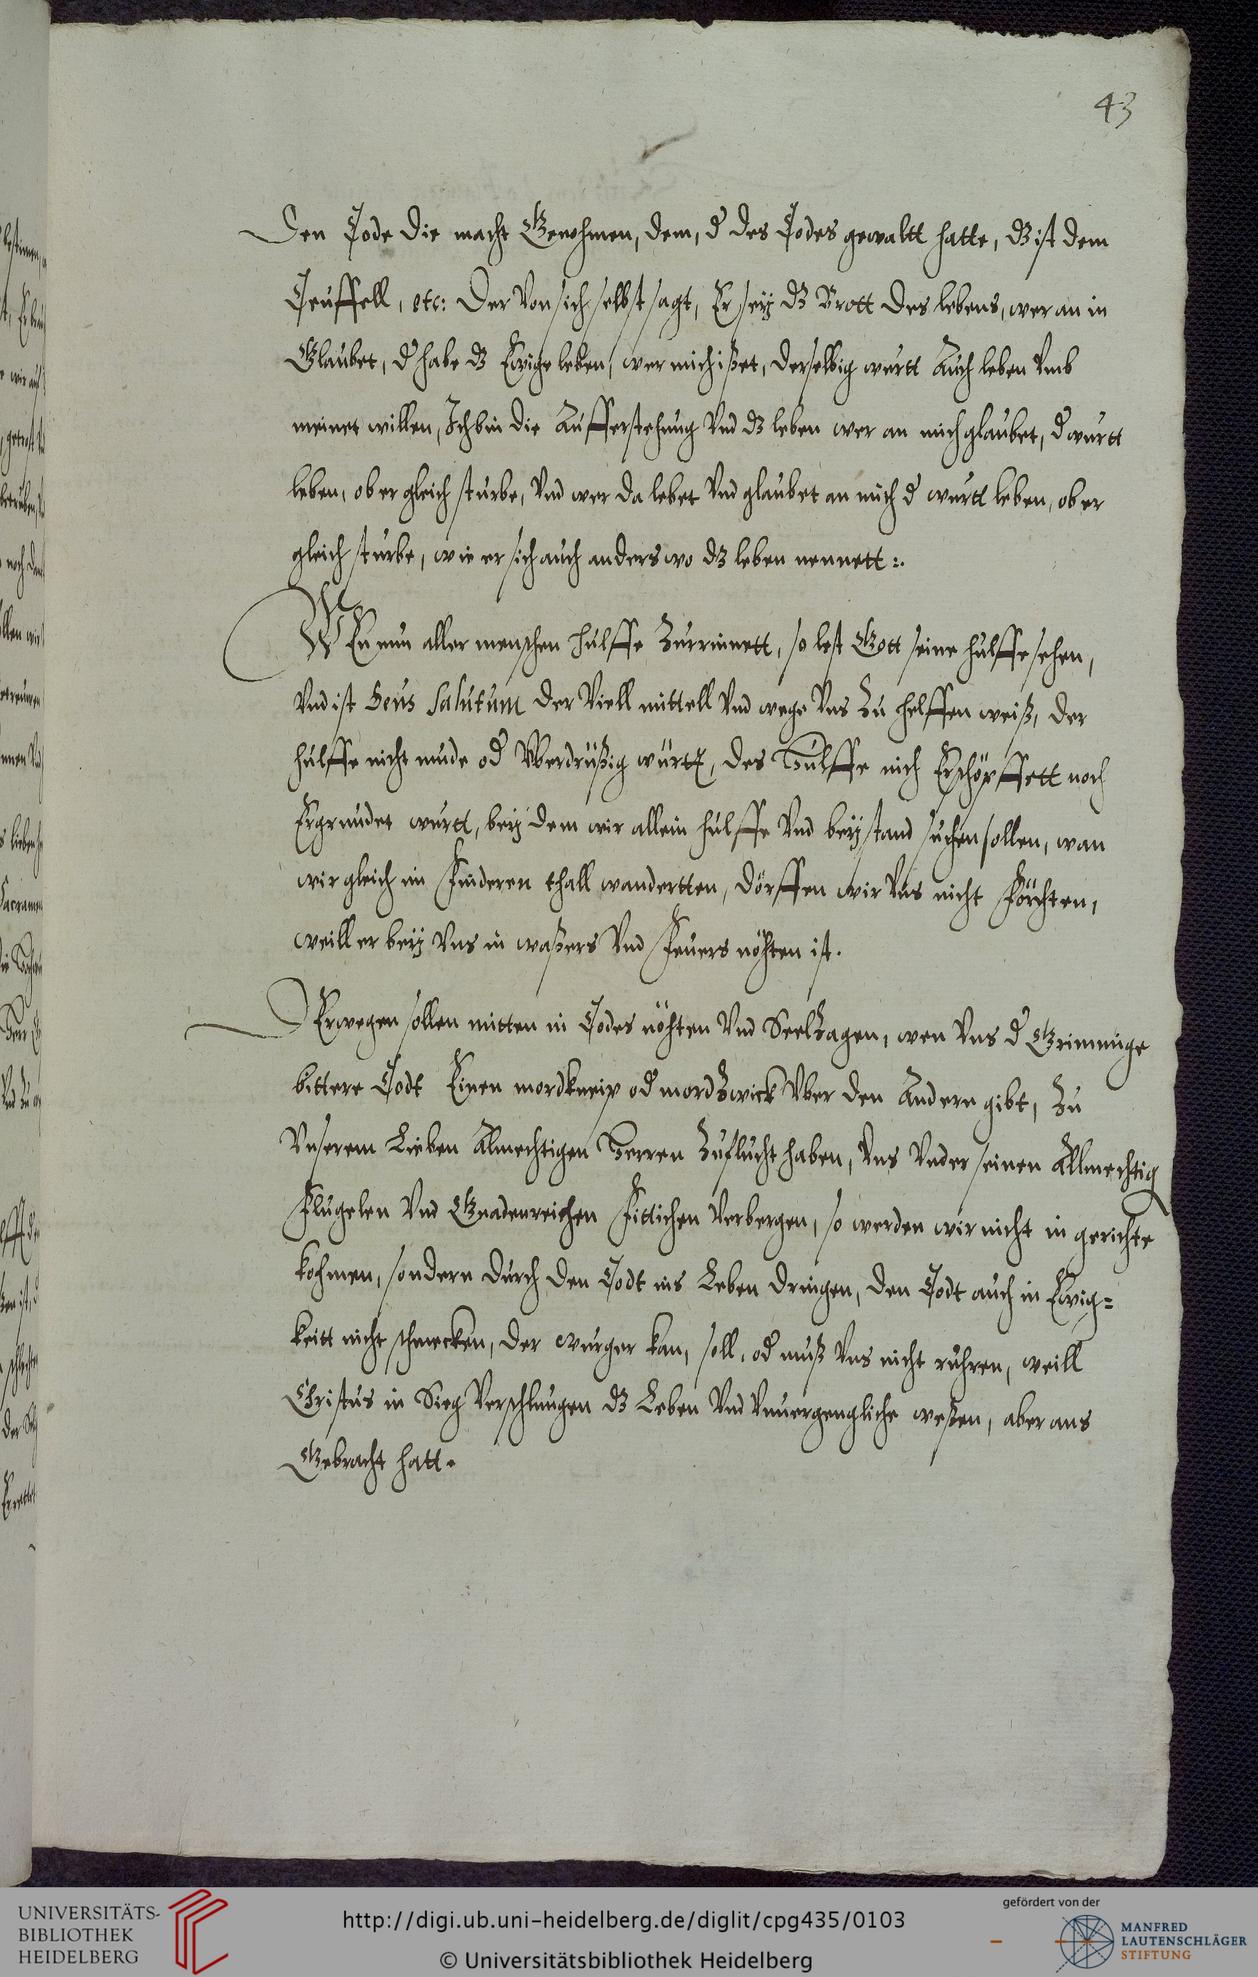 43
Den Tode die macht Genohmen, dem, d' des Todes gewaltt hatte, dz ist dem
Teuffell, etc: Der Von sich selbst sagt, Er sey dz Brott des lebens, wer an in
Glaubet, d' habe dz Ewige leben, wer mich ißet, derselbig wurtt Auch leben Vmb
meinet willen, Ich bin die Aufferstehung Vnd dz leben wer an mich glaubet, d' wurtt
leben, ob er gleich sturbe, Vnd wer da lebet Vnd glaubet an mich d' wurtt leben, ob er
gleich sturbe, wie er sich auch anderswo dz leben nennett :.
WEn nun aller menschen hulffe Zurrinnett, so lest Gott seine hulffe sehen,
Vnd ist Deus Salutum der Viell mittell Vnd wege Vns Zu helffen weiß, der
hulffe nicht mude od' Vberdrüßig württ, des Hulffe nich Erschöpffett noch
Ergrundet wurtt, bey dem wir allein hulffe Vnd beystand suchen sollen, wan
wir gleich im Finderen thall wandertten, dörffen wir Vns nicht Förchten,
weill er bey Vns in waßers Vnd Feuers nöhten ist.
DErwegen sollen mitten in Todes nöhten Vnd Seelzagen, wen Vns d' Grimmige
bittere Todt Einen mordkneip od' mordzwick Vber den Andern gibt, Zu
Vnserem Lieben Almechtigen Herren Zuflucht haben, Vns Vnder seinen Allmechtig
Flugelen Vnd Gnadenreichen Fittichen Verbergen, so werden wir nicht in gerichte
kohmen, sondern durch den Todt ins Leben dringen, den Todt auch in Ewig=
keitt nicht schmecken, der wurger kan, soll, od' muß Vns nicht ruhren, weill
Christus in Sieg Verschlungen dz Leben Vnd Vnuergengliche weßen, aber ans
Gebracht hatt.
UNIVERSITÄTS-
BIBLIOTHEK
HEIDELBERG
http://digi.ub.uni-heidelberg.de/diglit/cpg435/0103
© Universitätsbibliothek Heidelberg
gefördert von der
MANFRED
LAUTENSCHLÄGER
STIFTUNG